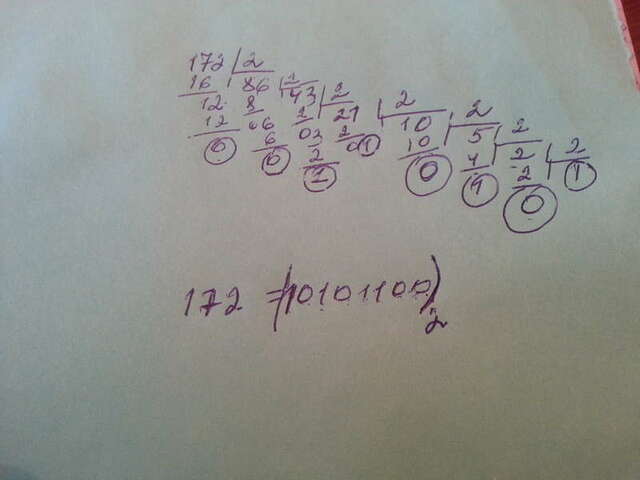 172 2
16 86 2
12 8 43 2
12 06 2 21 2
0 6 03 2 10 2
0 2 01 10 5 2
1 0 4 2 2
1 2 1
0
172 = (10101100)2